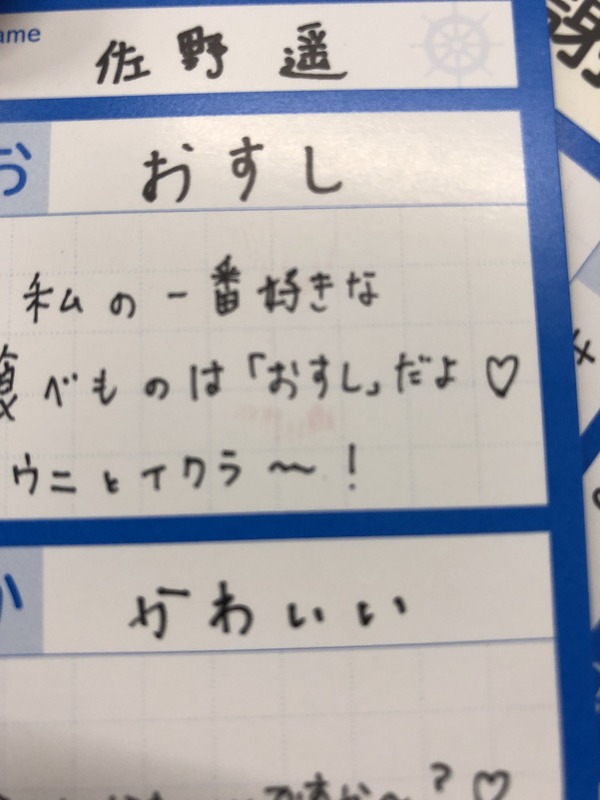 ame
佐野 遥
お
おすし
私の一番好きな
食べものは「おすし」だよ♡
ウニとイクラ〜!
か
かわいい
謝